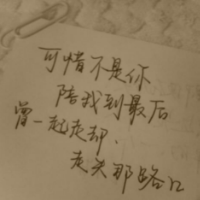 可惜不是你
陪我到最后
曾一起走却
走失那路口